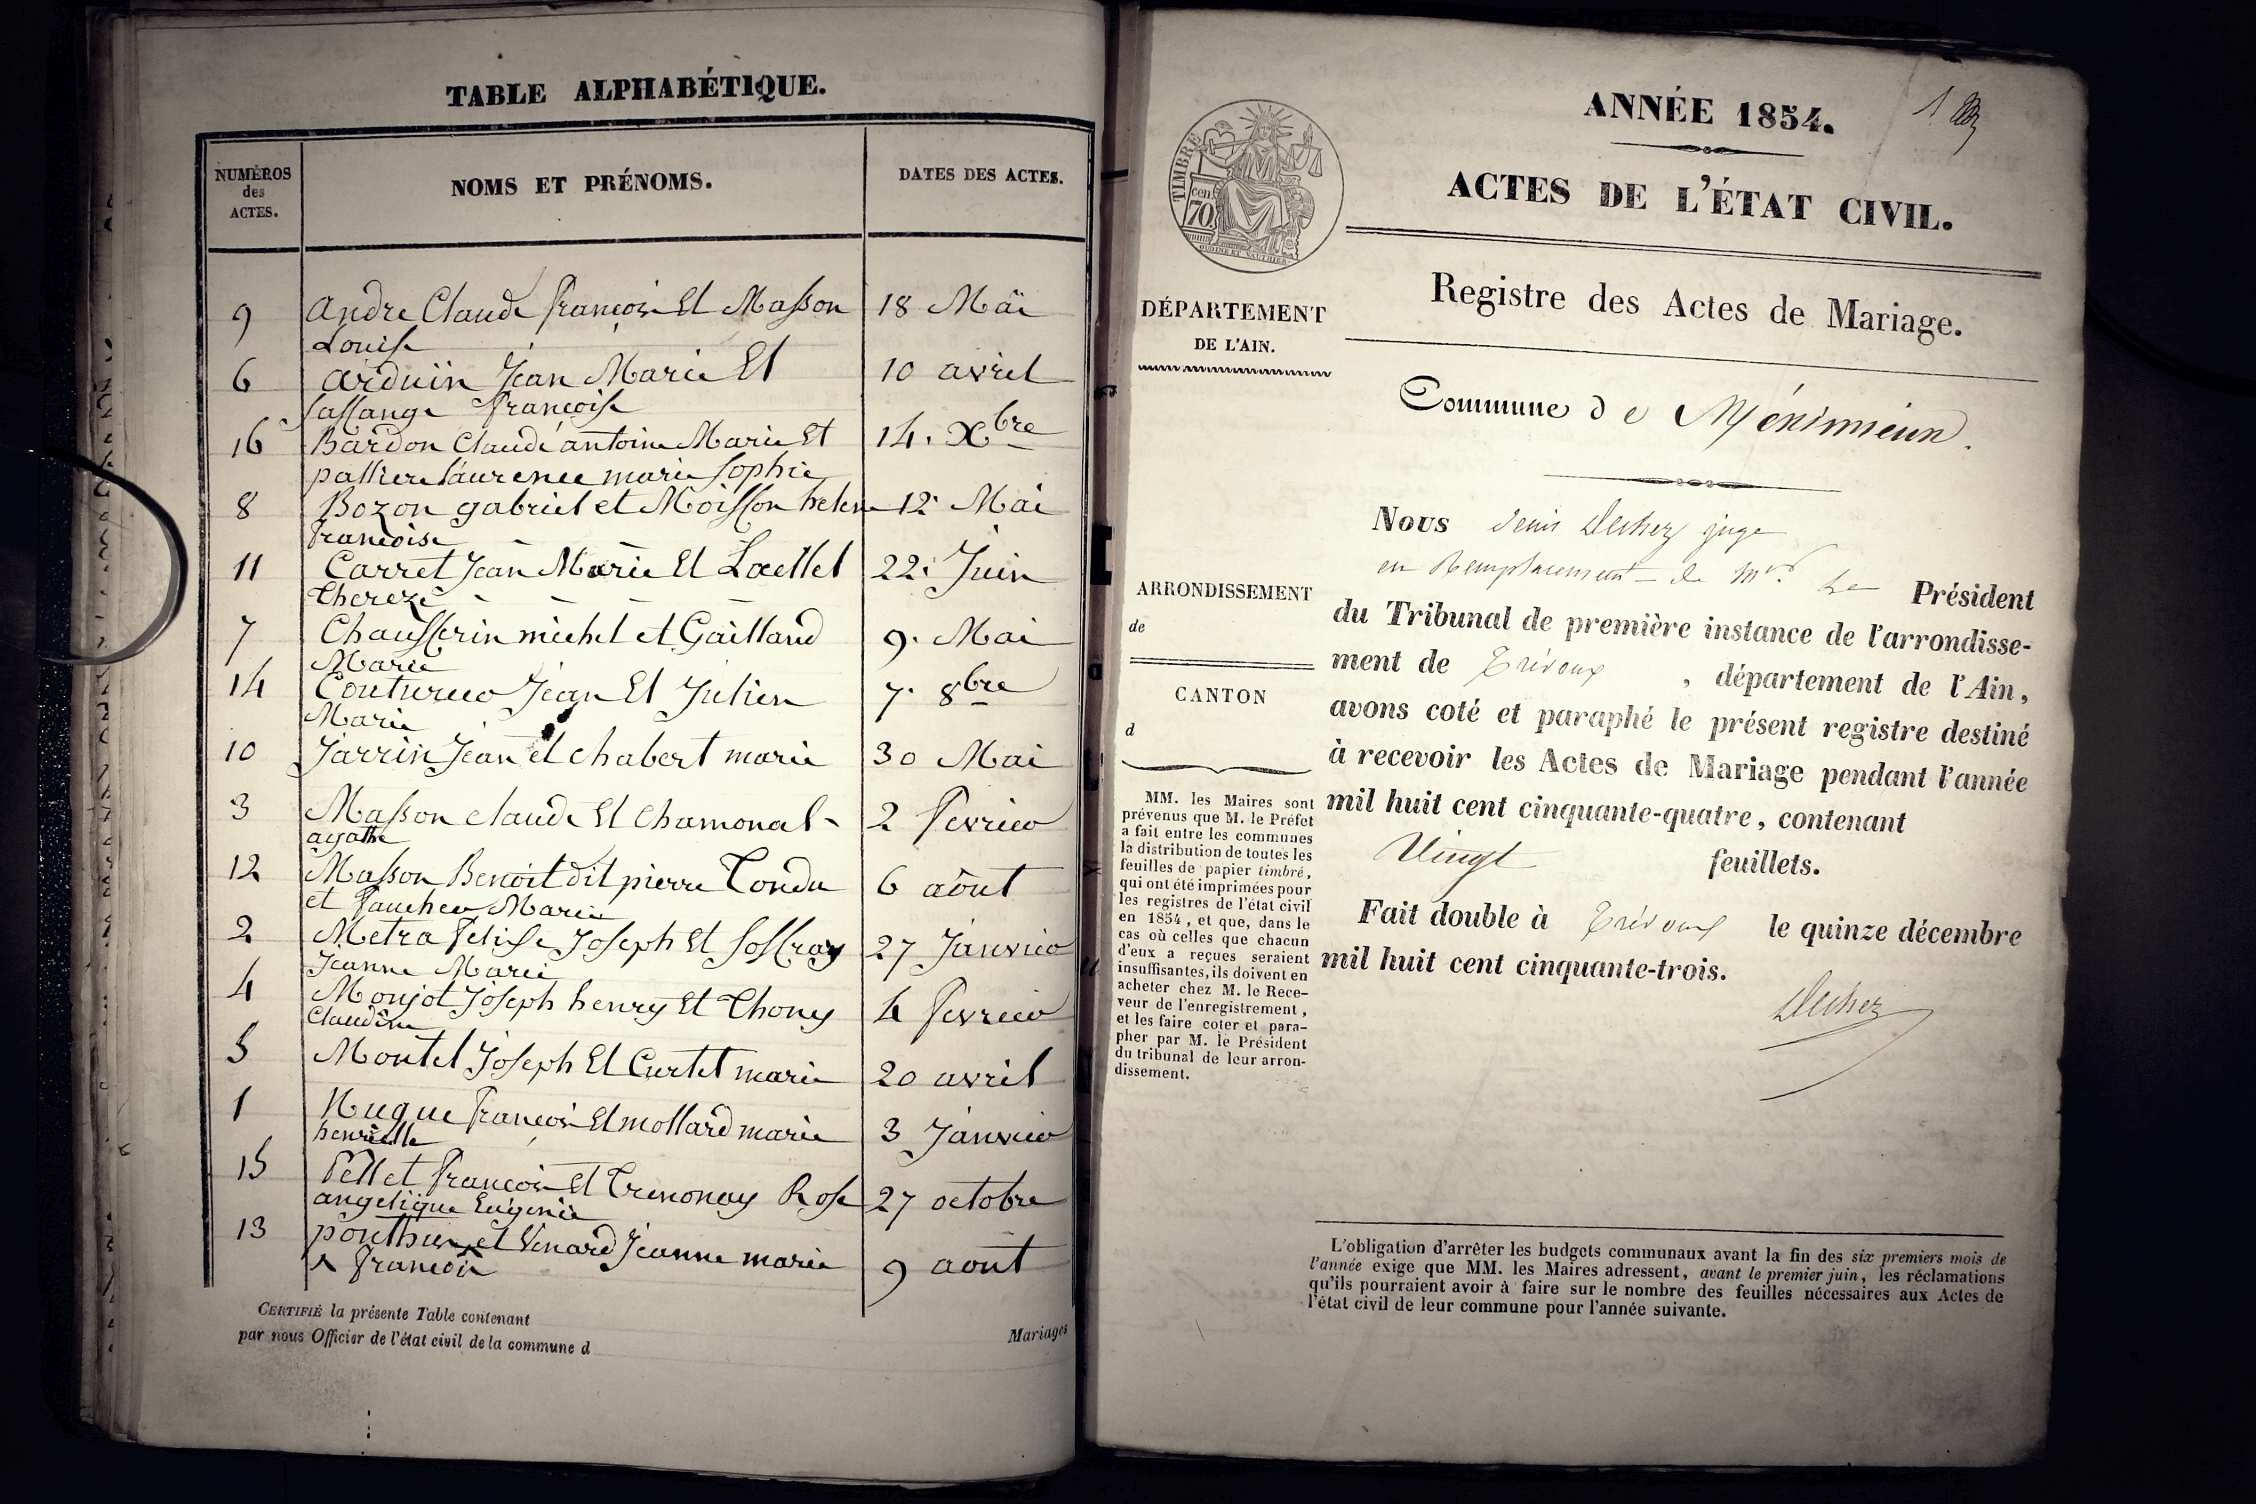 TABLE ALPHABÉTIQUE.
NUMÉROS
des
ACTES.
NOMS ET PRÉNOMS.
DATES DES ACTES.
9 Andre Claude françois Et Masson 18 Mai
Louise
6 arduin Jean Marie Et 10 avril
françoise
16 Bardon Claude antoine Marie Et 14. Xbre
laurence marie Sophie
8 Bozon gabriel et Moisson helene 12. Mai
françoise
11 Carret Jean Marie Et 22. Juin
Thereze
7 Chausserin michel et Gaillard 9. Mai
Marie
14 Couturier Jean Et Julien 7. 8bre
Marie
10 Jarrin Jean et chabert marie 30 Mai
3 Masson claude Et Chamonal 2 fevrier
agathe
12 Masson Benoit dit pierre Tondu 6 août
et faucheu Marie
2 Metra felise Joseph Et 27 Janvier
Jeanne Marie
4 Monjot Joseph henry Et Thony 4 fevrier
Claudine
5 Montel Joseph Et Curtet marie 20 avril
1 Hugue françois Et mollard marie 3 Janvier
henriette
15 Pellet françois Et Trenonay Rose 27 octobre
angelique Eugenie
13 ponthus et Venard Jeanne marie 9 aout
^ françois
CERTIFIÉ la présente Table contenant Mariages
par nous Officier de l'état civil de la commune d
1
ANNÉE 1854.
ACTES DE L'ÉTAT CIVIL.
TIMBRE
70 cen
OUDINE ET VAUTHIER
DÉPARTEMENT
DE L'AIN.
Registre des Actes de Mariage.
Commune de Méximieux.
ARRONDISSEMENT
de
CANTON
d
MM. les Maires sont
prévenus que M. le Préfet
a fait entre les communes
la distribution de toutes les
feuilles de papier timbré,
qui ont été imprimées pour
les registres de l'état civil
en 1854, et que, dans le
cas où celles que chacun
d'eux a reçues seraient
insuffisantes, ils doivent en
acheter chez M. le Rece-
veur de l'enregistrement,
et les faire coter et para-
pher par M. le Président
du tribunal de leur arron-
dissement.
Nous denis juge
en Remplacement de Mr. Le Président
du Tribunal de première instance de l'arrondisse-
ment de Trévoux, département de l'Ain,
avons coté et paraphé le présent registre destiné
à recevoir les Actes de Mariage pendant l'année
mil huit cent cinquante-quatre, contenant
Vingt feuillets.
Fait double à Trévoux le quinze décembre
mil huit cent cinquante-trois.
L'obligation d'arrêter les budgets communaux avant la fin des six premiers mois de
l'année exige que MM. les Maires adressent, avant le premier juin, les réclamations
qu'ils pourraient avoir à faire sur le nombre des feuilles nécessaires aux Actes de
l'état civil de leur commune pour l'année suivante.